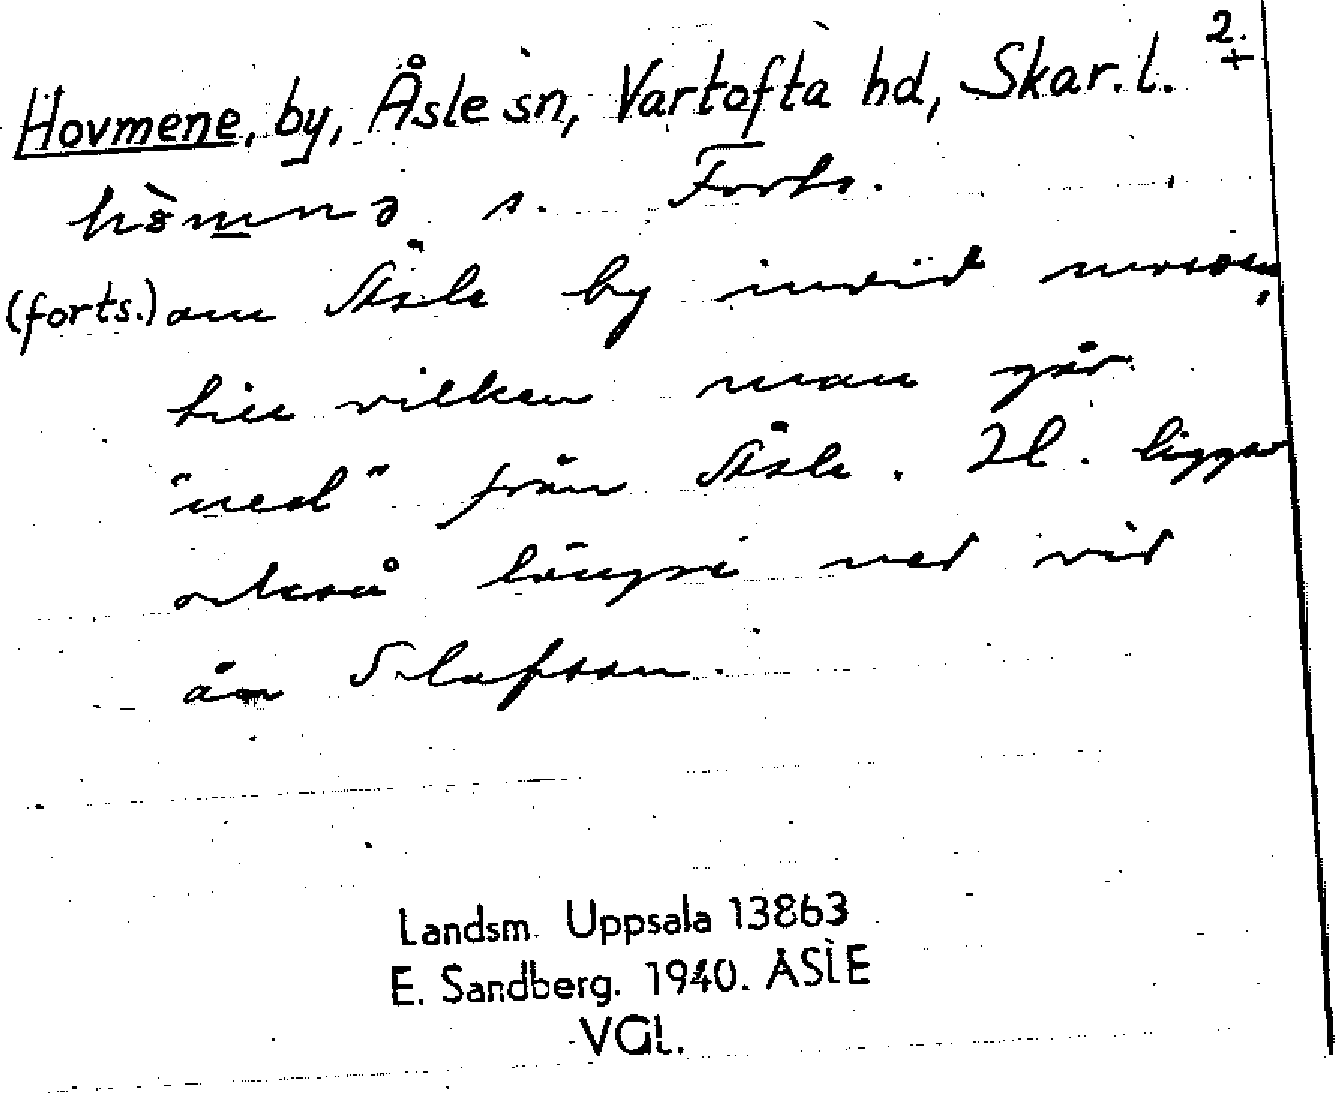 2.
Hovmene, by, Åsle sn, Vartofta hd, Skar. l. +
s. Forts.
(forts.) om Åsle by invid mossen,
till vilken man går
"ned" från Åsle. Il. ligger
också längre ned vid
ån Slafsan.
Landsm. Uppsala 13863
E. Sandberg. 1940. ÅSLE
VGL.